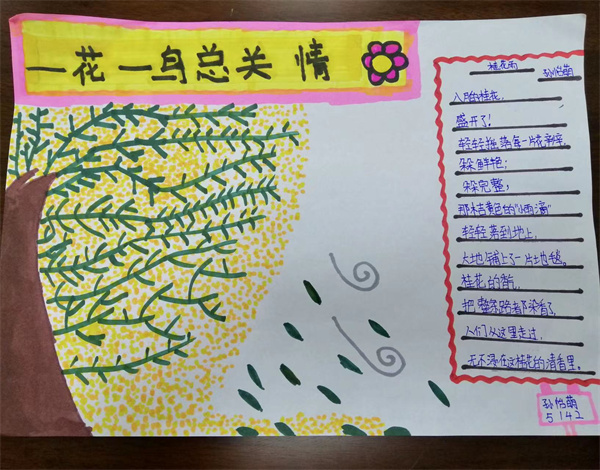 一花一鸟总关情
桂花雨
孙怡萌
八月的桂花,
盛开了!
轻轻摇落每一片衣裳,
朵鲜艳;
朵完整;
那桔黄色的"小雨滴"
轻轻落到地上,
大地铺上了一片地毯。
桂花的香,
把整条路都染香了,
人们从这里走过,
无不浸在这桂花的清香里。
孙怡萌
5142